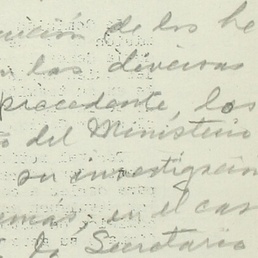 de los he
las diversas
procedente, los
del Ministerio
su investigación
en el cas
la Secretario